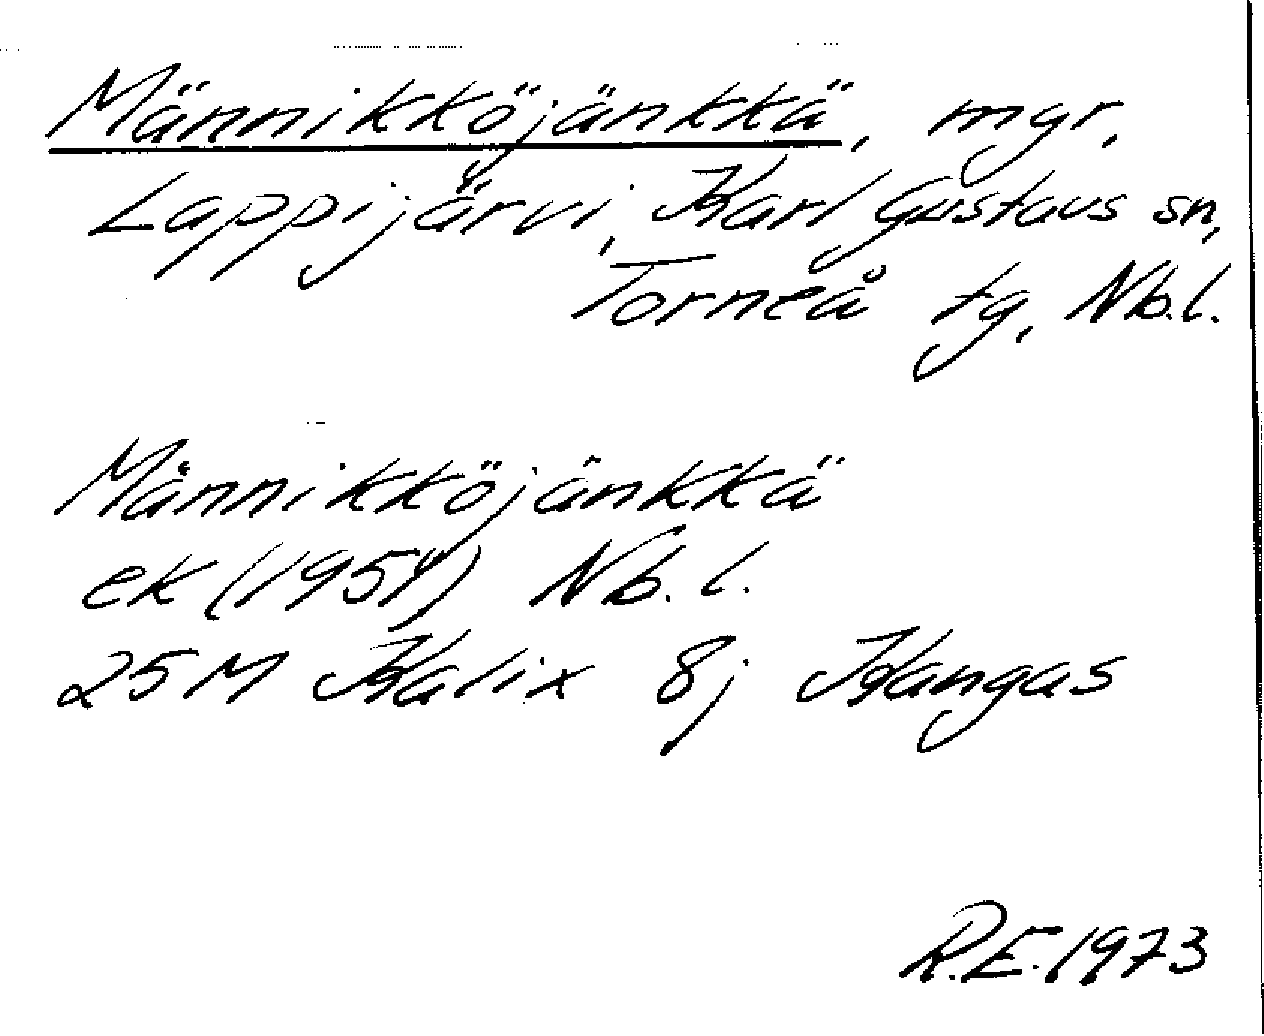 Männikköjänkkä, mgr,
Lappijärvi, Karl Gustavs sn,
Torneå tg, Nb.l.
Männikköjänkkä
ek (1954) Nb. l.
25M Kalix 8j Kangas
R.E. 1973